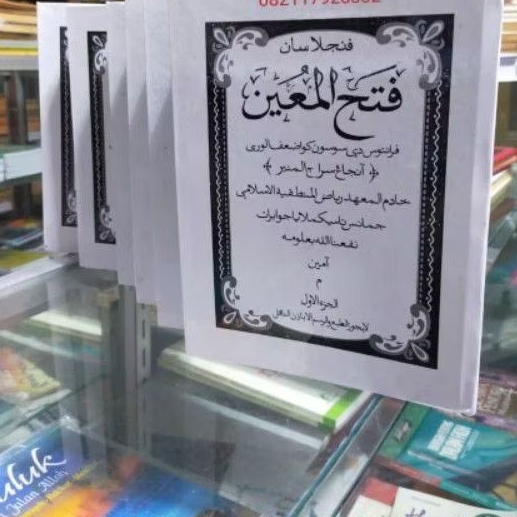 فنجلاسان
فتح المعين
فرانتوس دي سوسون كو اضعف الورى
﴿ آنجاغ سراج المنير ﴾
خادم المعهد رياض المنطقية الاسلامي
جمانس تاسيكملايا جوابرات
نفعنا الله بعلومه
آمين
م
الجزء الأول
لايجوز الطبع والرسم الا باذن الناقل
uluk
Jalan Allah